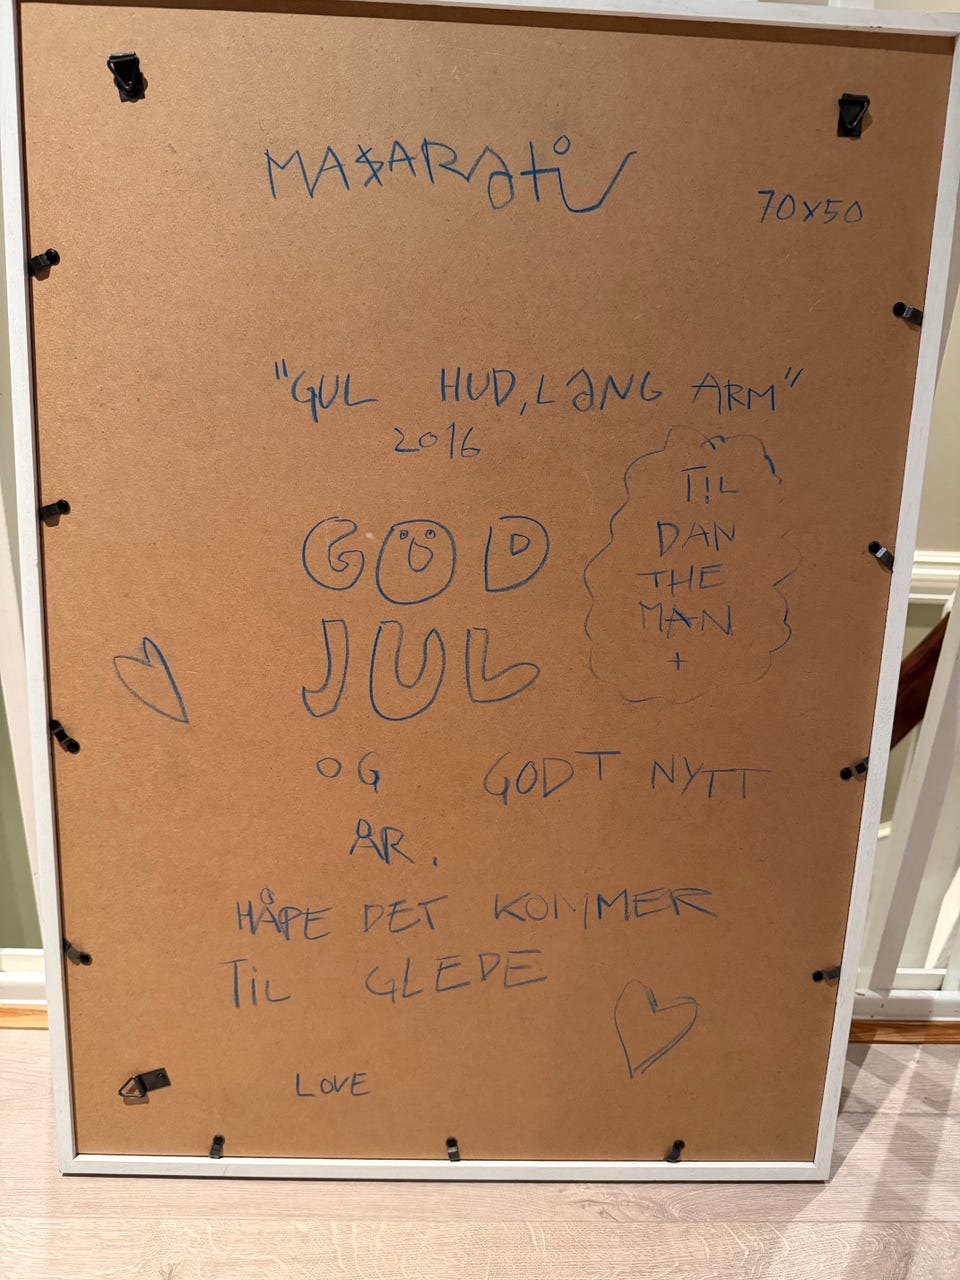 MA$ARati
70x50
"GUL HUD, LANG ARM"
2016
TIL
DAN
THE
MAN
+
GOD
JUL
OG GODT NYTT
ÅR.
HÅPE DET KOMMER
TiL GLEDE
LOVE